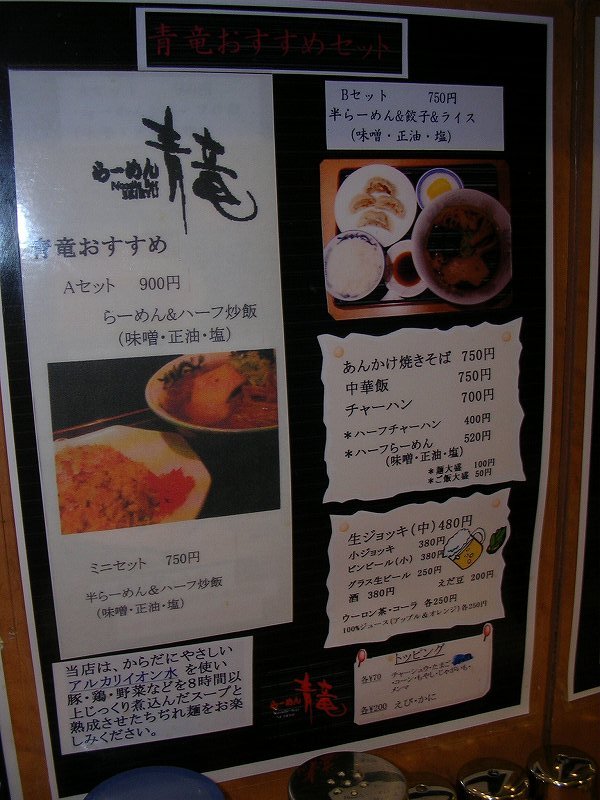 青竜おすすめセット
らーめん
青竜
青竜おすすめ
Aセット 900円
らーめん&ハーフ炒飯
(味噌・正油・塩)
ミニセット 750円
半らーめん&ハーフ炒飯
(味噌・正油・塩)
当店は、からだにやさしい
アルカリイオン水 を使い
豚・鶏・野菜などを8時間以
上じっくり煮込んだスープと
熟成させたちぢれ麺をお楽
しみください。
Bセット 750円
半らーめん&餃子&ライス
(味噌・正油・塩)
あんかけ焼きそば 750円
中華飯 750円
チャーハン 700円
*ハーフチャーハン 400円
*ハーフらーめん 520円
(味噌・正油・塩)
*麺大盛 100円
*ご飯大盛 50円
生ジョッキ(中)480円
小ジョッキ 380円
ビンビール(小) 380円
グラス生ビール 250円
酒 380円 えだ豆 200円
ウーロン茶・コーラ 各250円
100%ジュース(アップル&オレンジ)各250円
トッピング
各¥70 チャーシュウ・たまご
・コーン・もやし・じゃがいも・
メンマ
各¥200 えび・かに
らーめん
青竜